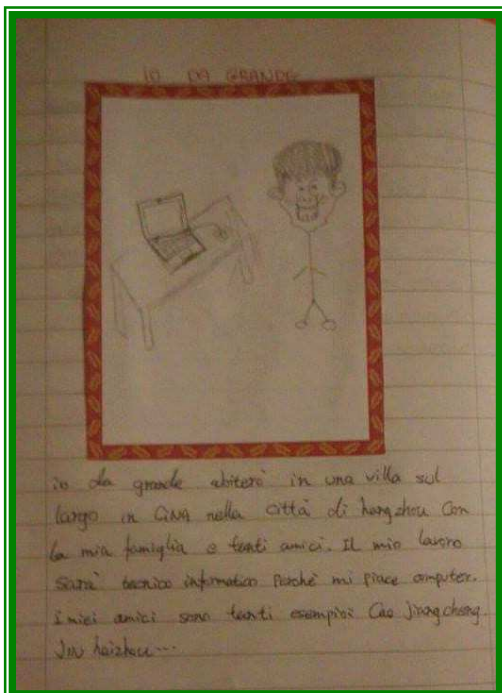 IO DA GRANDE
io da grande abiterò in una villa sul
largo in CiNA nella città di hangzhou Con
la mia famiglia e tanti amici. Il mio lavoro
sarà tecnico informatico Perché mi piace computer.
i miei amici sono tanti esempio: Cao jiangcheng
Jin haizhou...